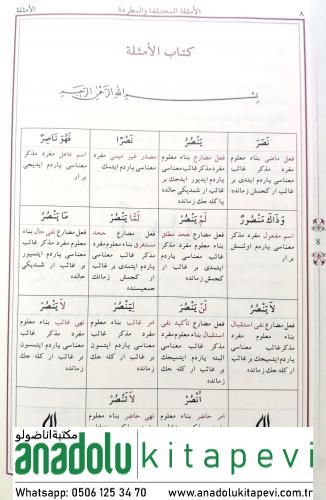 الأمثلة
الأمثلة المختلفة والمطردة
٨
كتاب الأمثلة
بسم الله الرحمن الرحيم
نَصَرَ
فعل ماضى بناء معلوم
مفرد مذكر غائب
معناسى ياردم ايتدى بر
غائب ار كجمش زمانده
يَنْصُرُ
فعل مضارع بناء معلوم
مفرد مذكر غائب معناسى
ياردم ايديور ايدجك بر
غائب ار شمديكى حالده
يا كله جك زمانده
نَصْرًا
مصدر غير ميمى مفرد
معناسى ياردم ايتمك
فَهُوَ نَاصِرٌ
اسم فاعل مفرد مذكر
معناسى ياردم ايديجى
بر ار
وَ ذَاكَ مَنْصُورٌ
اسم مفعول مفرد مذكر
معناسى ياردم اولنمش
بر ار
لَمْ يَنْصُرْ
فعل مضارع جحد مطلق
بناء معلوم مفرد مذكر
غائب معناسى ياردم
ايتمدى بر غائب ار
كجمش زمانده
لَمَّا يَنْصُرْ
فعل مضارع جحد
مستغرق بناء معلوم مفرد
مذكر غائب معناسى
ياردم ايتمدى بر غائب ار
كجمش زمانك
جميعسنده
مَا يَنْصُرُ
فعل مضارع نفى حال بناء
معلوم مفرد مذكر غائب
معناسى ياردم ايتميور
بر غائب ار شمديكى
حالده
لَا يَنْصُرُ
فعل مضارع نفى استقبال
بناء معلوم مفرد
مذكر غائب معناسى
ياردم ايتميجك بر غائب
ار كله جك زمانده
لَنْ يَنْصُرَ
فعل مضارع تأكيد نفى
استقبال بناء معلوم مفرد
مذكر غائب معناسى
البته ياردم ايتميجك
بر غائب ار كله جك
زمانده
لِيَنْصُرْ
امر غائب بناء معلوم
مفرد مذكر غائب
معناسى ياردم ايتسون
بر غائب ار كله جك
زمانده
لَا يَنْصُرْ
نهى غائب بناء معلوم
مفرد مذكر غائب
معناسى ياردم ايتمسون
بر غائب ار كله جك
زمانده
اُنْصُرْ
امر حاضر بناء معلوم
لَا تَنْصُرْ
نهى حاضر بناء معلوم
8
مكتبة اناضولو
anadolu kitapevi
Whatsapp: 0506 125 34 70
www.anadolukitapevi.com.tr